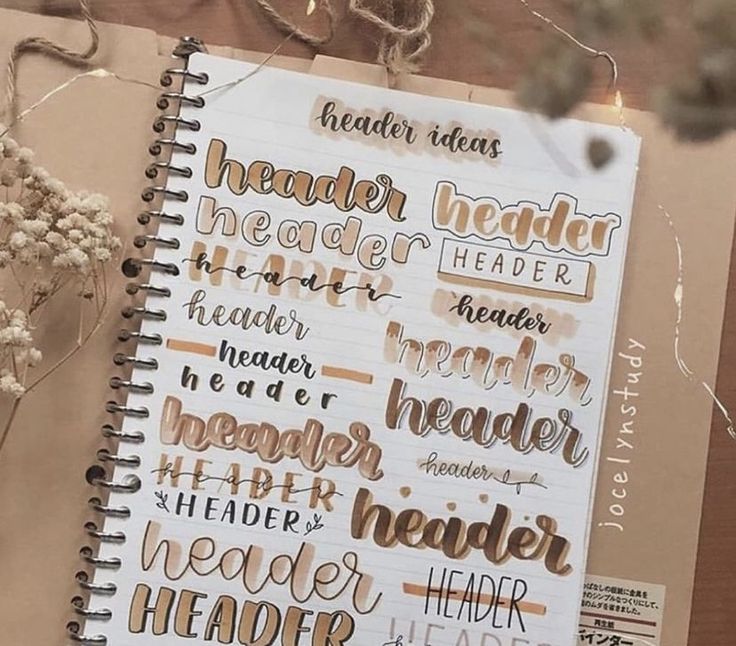 header ideas
header
header
header
HEADER
header
header
header
header
header
header
HEADER
header
HEADER
header
HEADER
header
HEADER
header
header
header
header
header
HEADER
HEADER
jocelynstudy
再生紙